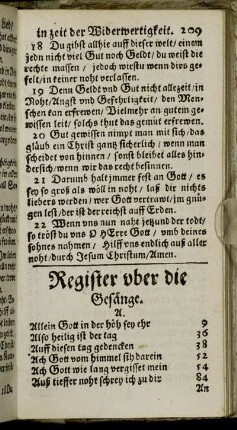 in zeit der Widerwertigkeit. 209
18 Du gibst allhie auff dieser welt / einem
jeden nicht viel Gut noch Geldt / du weist die
rechte massen / jedoch wirstu wenn dirs ge-
felt / in keiner noht verlassen.
19 Denn Geldt vnd Gut nicht allezeit / in
Noht / Angst vnd Gefehrligkeit / den Men-
schen kan erfrewen / Vielmehr an gutem ge-
wissen leit / solchs thut das gemüt erfrewen.
20 Gut gewissen nimpt man mit sich / das
gläub ein Christ gantz sicherlich / wenn man
scheidet von hinnen / sonst bleibet alles hin-
dersich / wenn wir das recht besinnen.
21 Darumb halt jmmer fest an Gott / es
sey so groß als wöll in noht / laß dir nichts
liebers werden / wer Gott vertrawt / jm gnü-
gen lest / der ist der reichst auff Erden.
22 Wenn vns nun nahet jetzund der todt /
so tröst du vns O HErre Gott / vmb deines
sohnes nahmen / Hilff vns endlich auß aller
noht / durch Jesum Christum / Amen.
Register vber die
Gesänge.
A.
Allein Gott in der höh sey ehr 9
Also heilig ist der tag 36
Auff diesen tag gedencken 38
Ach Gott vom himmel sih darein 52
Ach Gott wie lang vergisset mein 54
Auß tieffer noht schrey ich zu dir 84
An